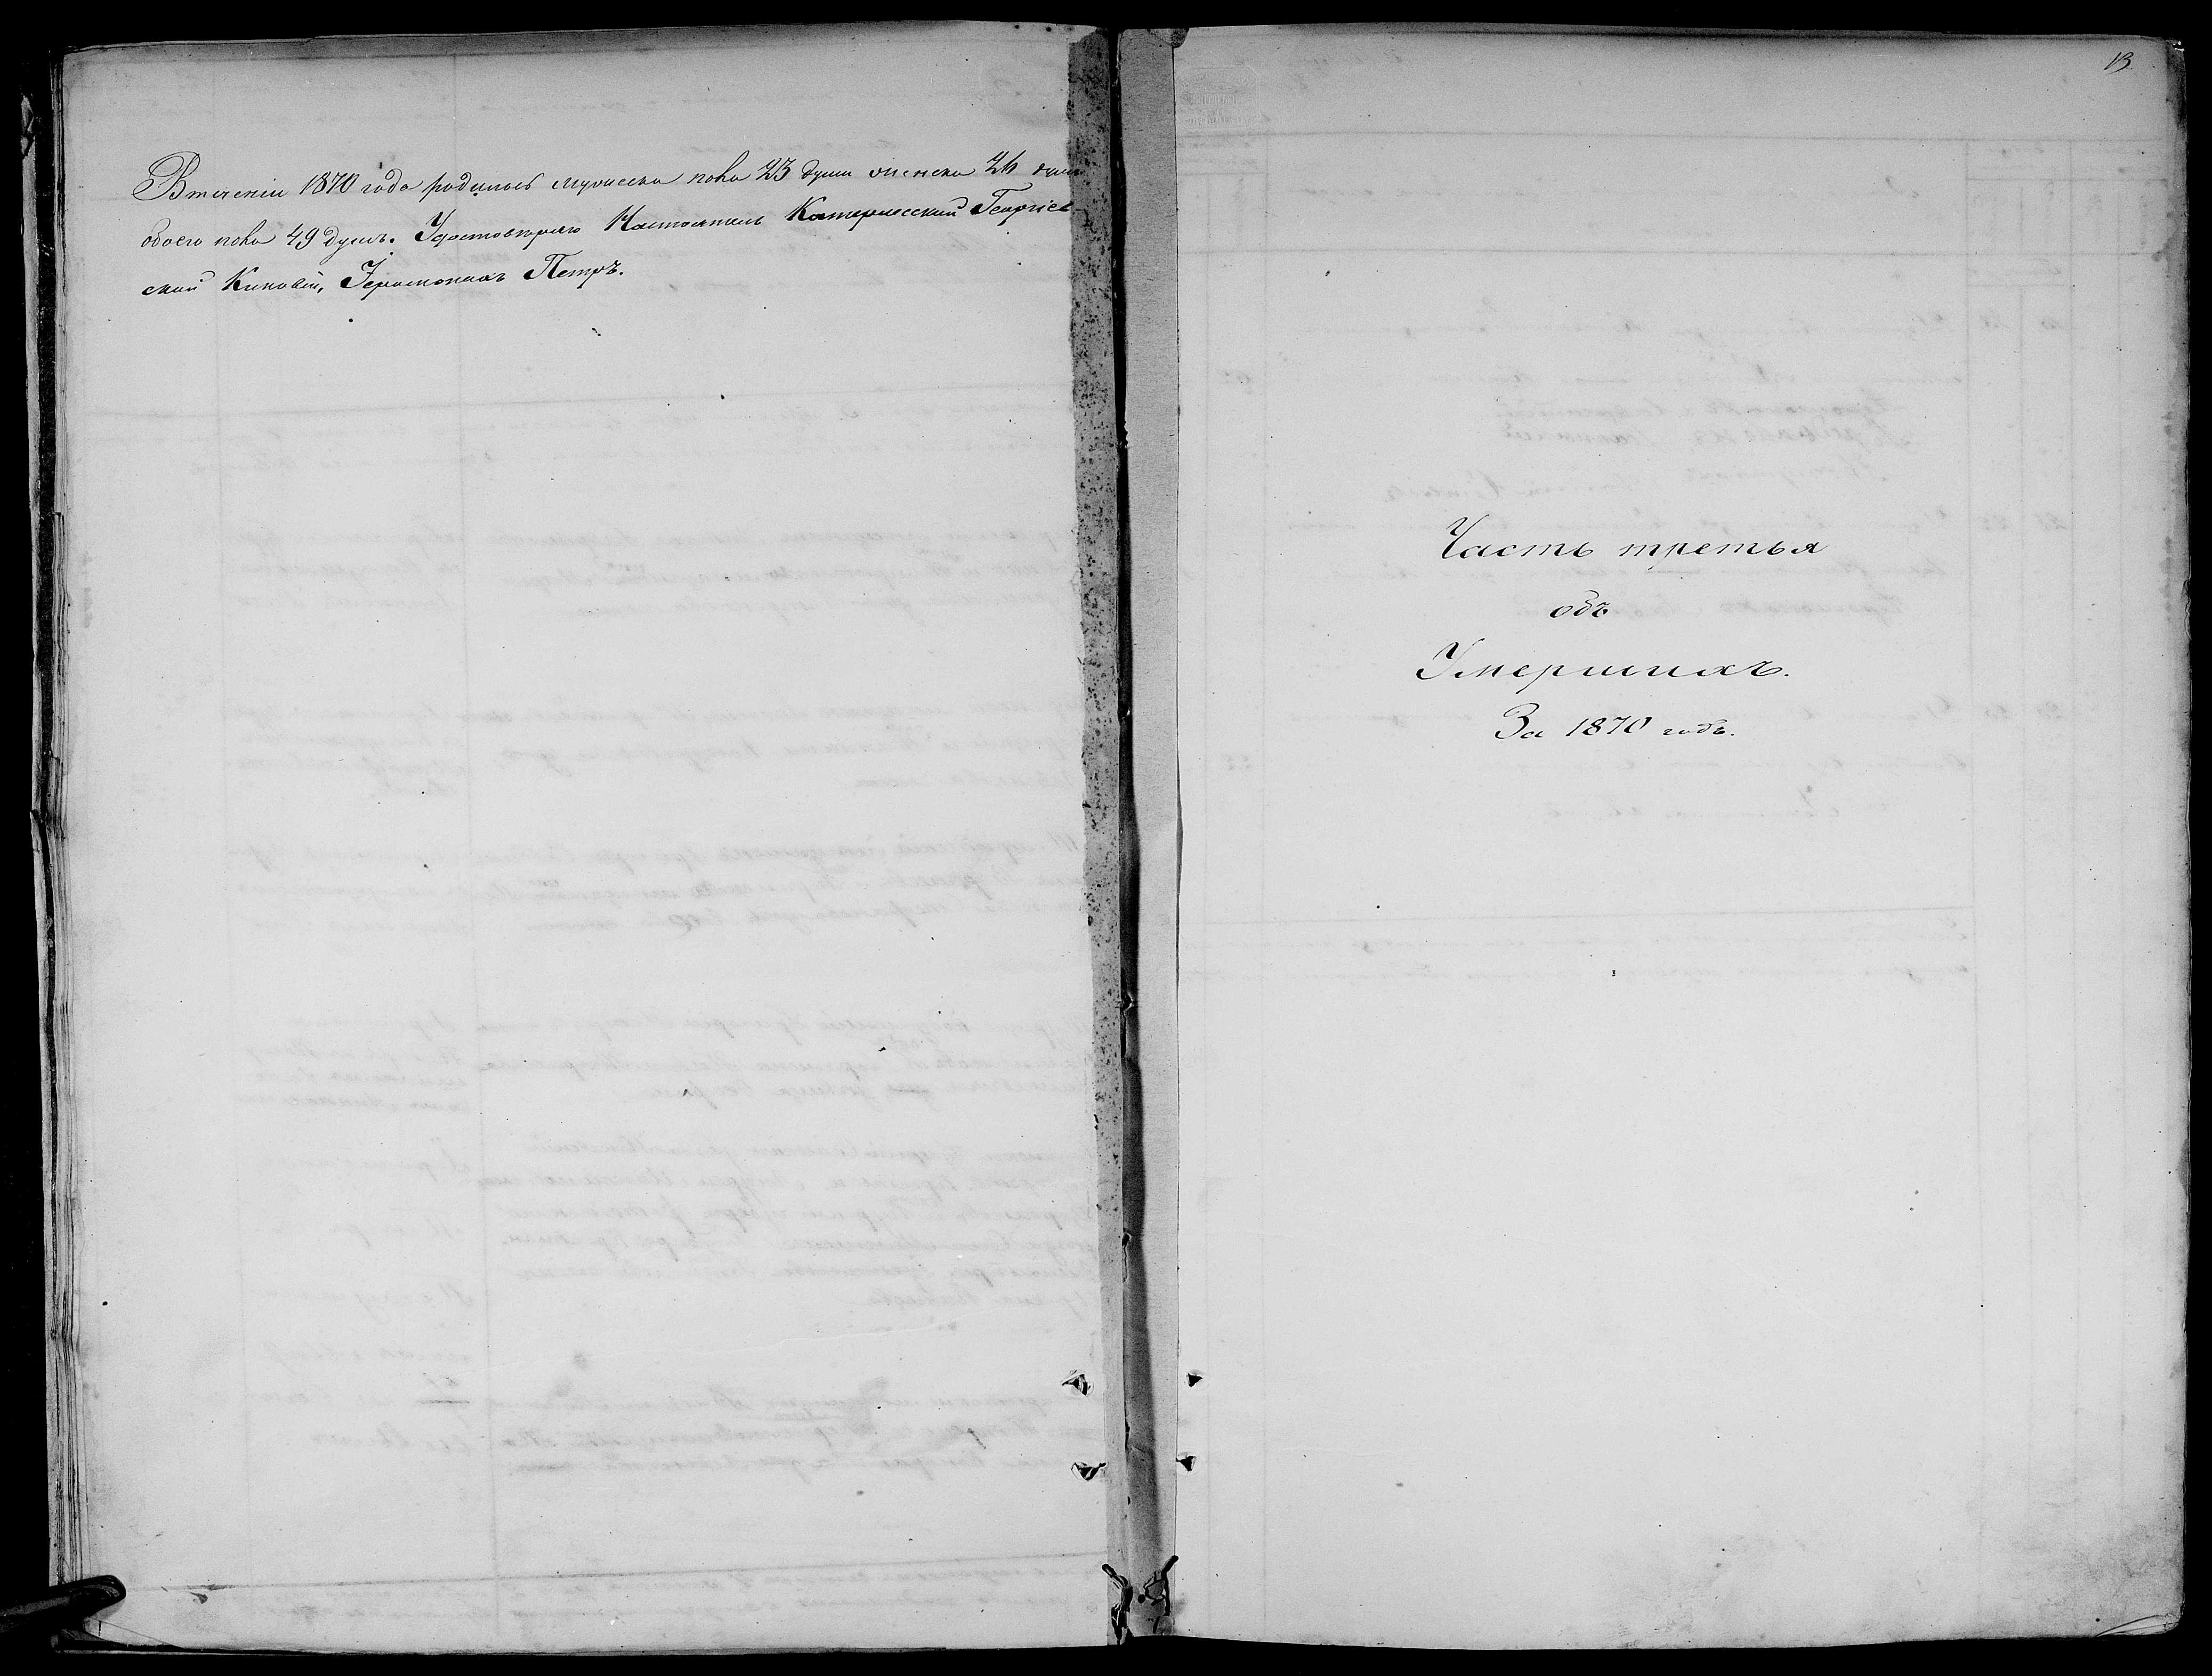 В течении 1870 года родилось мужеска пола 23 души женска 26 душ
обоего пола 49 душ. Удостоверяю Настоятель Катерлесский Георгіев
ской Киновіи, Іеромонахъ Петръ.
13
Часть третья
объ
Умершихъ.
За 1870 годъ.